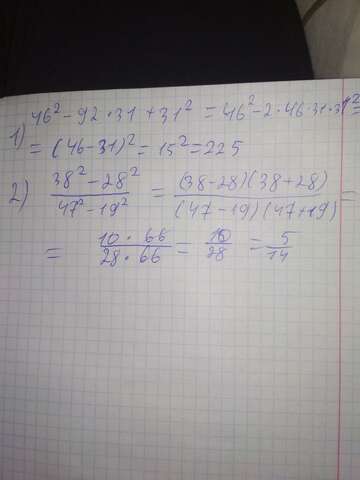 1) 46² - 92 · 31 + 31² = 46² - 2 · 46 · 31 · 31² =
= (46 - 31)² = 15² = 225
2) 38² - 28² / 47² - 19² = (38 - 28)(38 + 28) / (47 - 19)(47 + 19) =
= 10 · 66 / 28 · 66 = 10 / 28 = 5 / 14